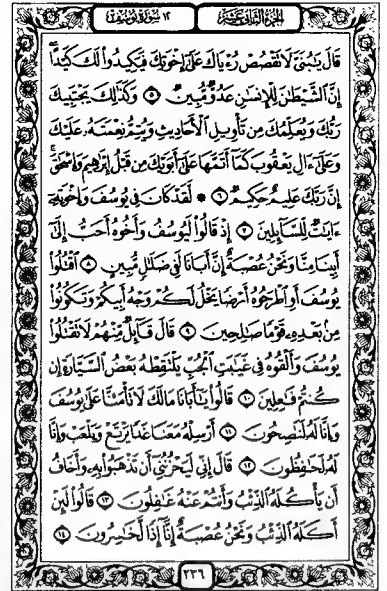 الجزء الثاني عشر
١٢ سورة يوسف
قَالَ يَٰبُنَيَّ لَا تَقۡصُصۡ رُءۡيَاكَ عَلَىٰٓ إِخۡوَتِكَ فَيَكِيدُواْ لَكَ كَيۡدًاۖ
إِنَّ ٱلشَّيۡطَٰنَ لِلۡإِنسَٰنِ عَدُوّٞ مُّبِينٞ ٥ وَكَذَٰلِكَ يَجۡتَبِيكَ
رَبُّكَ وَيُعَلِّمُكَ مِن تَأۡوِيلِ ٱلۡأَحَادِيثِ وَيُتِمُّ نِعۡمَتَهُۥ عَلَيۡكَ
وَعَلَىٰٓ ءَالِ يَعۡقُوبَ كَمَآ أَتَمَّهَا عَلَىٰٓ أَبَوَيۡكَ مِن قَبۡلُ إِبۡرَٰهِيمَ وَإِسۡحَٰقَۚ
إِنَّ رَبَّكَ عَلِيمٌ حَكِيمٞ ٦ ۞ لَّقَدۡ كَانَ فِي يُوسُفَ وَإِخۡوَتِهِۦٓ
ءَايَٰتٞ لِّلسَّآئِلِينَ ٧ إِذۡ قَالُواْ لَيُوسُفُ وَأَخُوهُ أَحَبُّ إِلَىٰٓ
أَبِينَا مِنَّا وَنَحۡنُ عُصۡبَةٌ إِنَّ أَبَانَا لَفِي ضَلَٰلٖ مُّبِينٍ ٨ ٱقۡتُلُواْ
يُوسُفَ أَوِ ٱطۡرَحُوهُ أَرۡضٗا يَخۡلُ لَكُمۡ وَجۡهُ أَبِيكُمۡ وَتَكُونُواْ
مِنۢ بَعۡدِهِۦ قَوۡمٗا صَٰلِحِينَ ٩ قَالَ قَآئِلٞ مِّنۡهُمۡ لَا تَقۡتُلُواْ
يُوسُفَ وَأَلۡقُوهُ فِي غَيَٰبَتِ ٱلۡجُبِّ يَلۡتَقِطۡهُ بَعۡضُ ٱلسَّيَّارَةِ إِن
كُنتُمۡ فَٰعِلِينَ ١٠ قَالُواْ يَٰٓأَبَانَا مَالَكَ لَا تَأۡمَ۬نَّا عَلَىٰ يُوسُفَ
وَإِنَّا لَهُۥ لَنَٰصِحُونَ ١١ أَرۡسِلۡهُ مَعَنَا غَدٗا يَرۡتَعۡ وَيَلۡعَبۡ وَإِنَّا
لَهُۥ لَحَٰفِظُونَ ١٢ قَالَ إِنِّي لَيَحۡزُنُنِيٓ أَن تَذۡهَبُواْ بِهِۦ وَأَخَافُ
أَن يَأۡكُلَهُ ٱلذِّئۡبُ وَأَنتُمۡ عَنۡهُ غَٰفِلُونَ ١٣ قَالُواْ لَئِنۡ
أَكَلَهُ ٱلذِّئۡبُ وَنَحۡنُ عُصۡبَةٌ إِنَّآ إِذٗا لَّخَٰسِرُونَ ١٤
٢٣٦